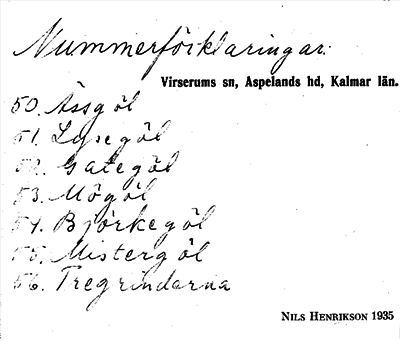 Nummerförklaringar:
Virserums sn, Aspelands hd, Kalmar län.
50. Åssgöl
51. Lysegöl
52. Gategöl
53. Mögöl
54. Björkegöl
55. Mistergöl
56. Tregrindarna
NILS HENRIKSON 1935